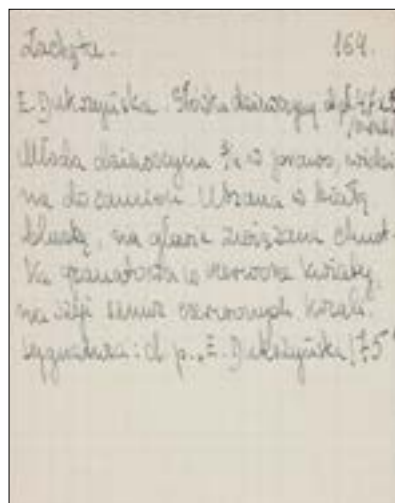 Zachęta. 164.
E. Dukszyńska. Główka dziewczyny
Młoda dziewczyna 3/4 w prawo, widz
na do ramion. Ubrana w białą
bluzkę, na głowie związana chust-
ka granatowa w czerwone kwiaty,
na szyi sznur czerwonych korali.
Sygnatura: d. p. „E. Dukszyńska